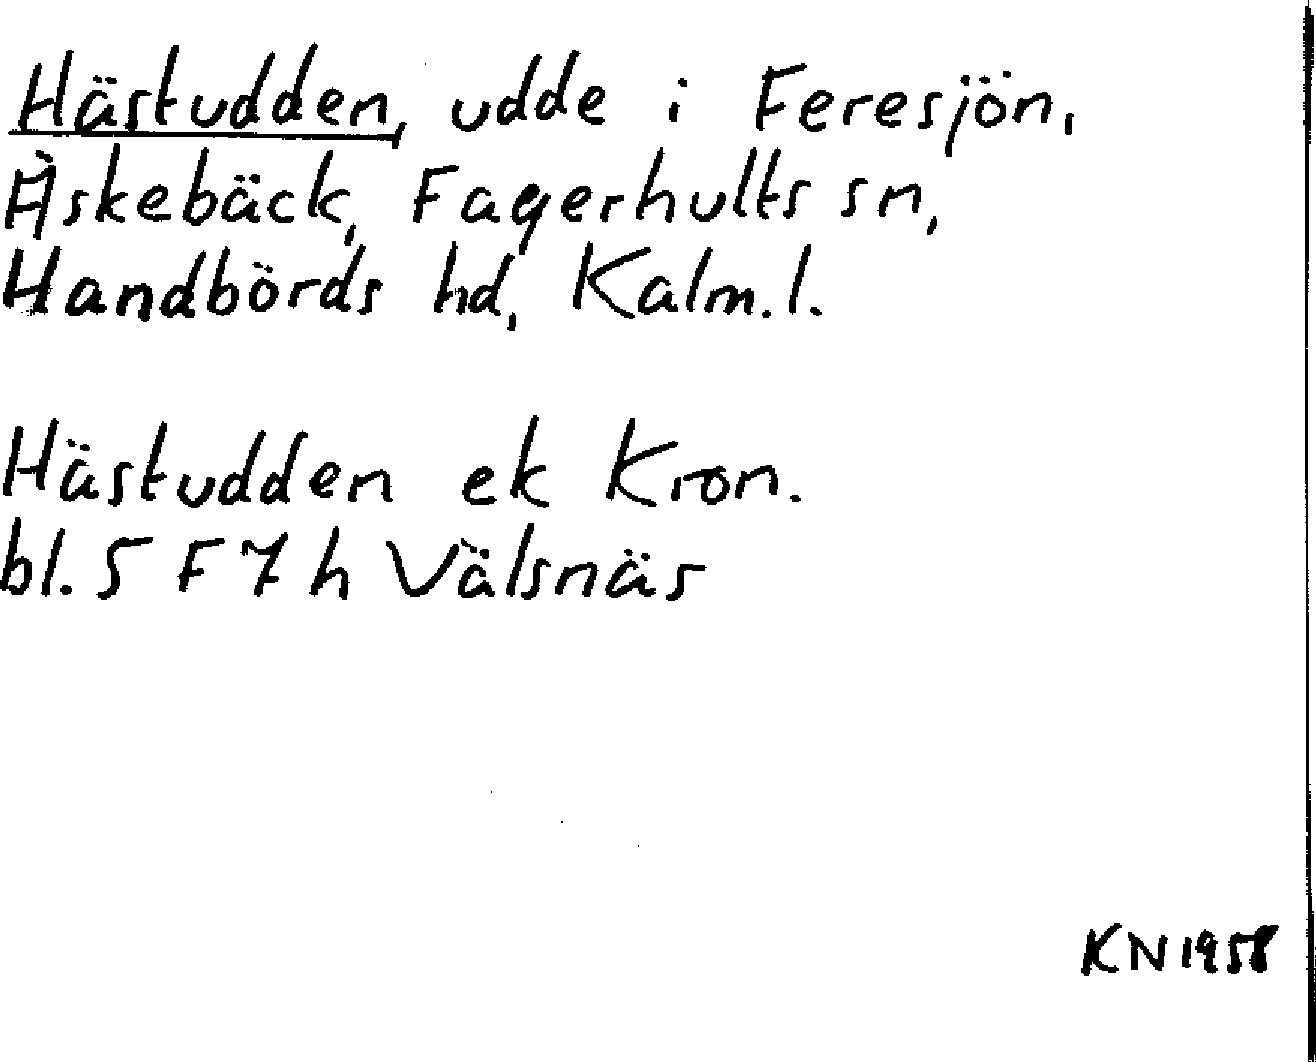 Hästudden, udde i Feresjön,
Äskebäck, Fagerhults sn,
Handbörds hd, Kalm. l.
Hästudden ek Kron.
bl. 5 F 7 h Välsnäs
KN 1958